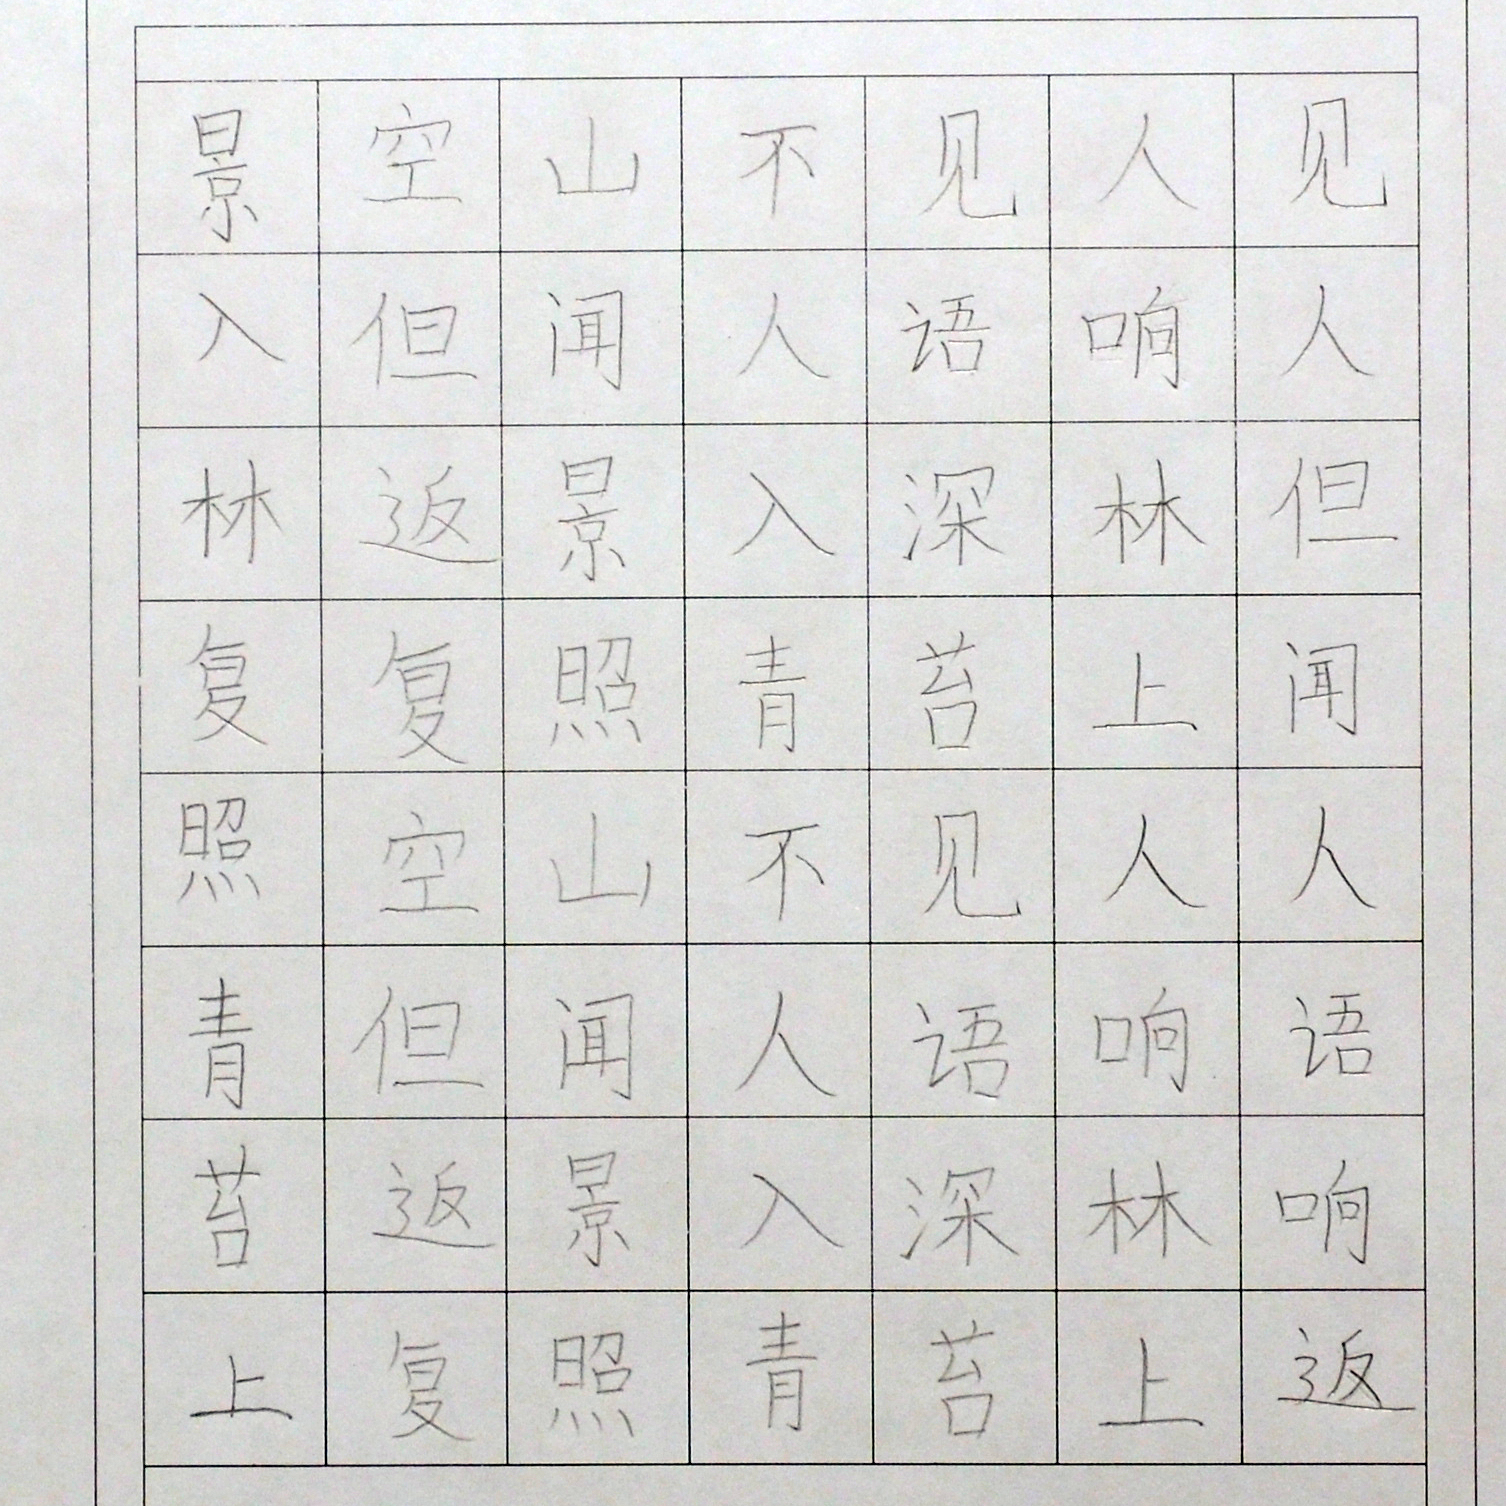 景空山不见人见
入但闻人语响人
林返景入深林但
复复照青苔上闻
照空山不见人人
青但闻人语响语
苔返景入深林响
上复照青苔上返